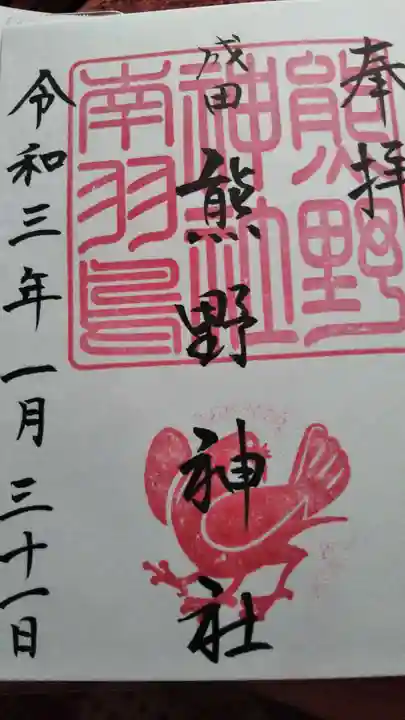 奉拝
成田
熊野神社
令和三年一月三十一日
熊野
神社
南羽鳥